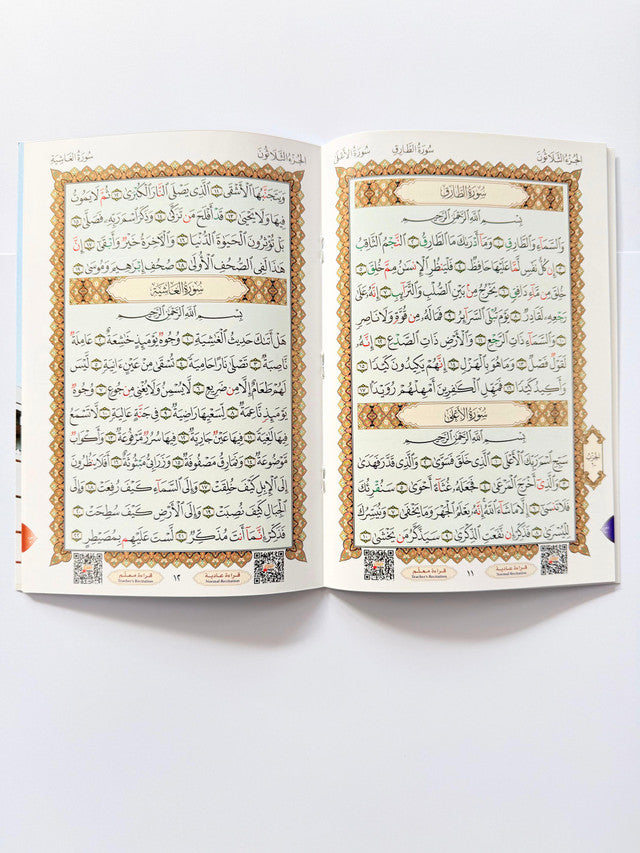 الجُزءُ الثَّلَاثُونَ سُورَةُ الطَّارِقِ سُورَةُ الأَعْلَى
سُورَةُ الطَّارِقِ
بِسْمِ اللَّهِ الرَّحْمَٰنِ الرَّحِيمِ
وَٱلسَّمَآءِ وَٱلطَّارِقِ ١ وَمَآ أَدْرَىٰكَ مَا ٱلطَّارِقُ ٢ ٱلنَّجْمُ ٱلثَّاقِبُ
٣ إِن كُلُّ نَفْسٍ لَّمَّا عَلَيْهَا حَافِظٌ ٤ فَلْيَنظُرِ ٱلْإِنسَٰنُ مِمَّ خُلِقَ ٥
خُلِقَ مِن مَّآءٍ دَافِقٍ ٦ يَخْرُجُ مِنۢ بَيْنِ ٱلصُّلْبِ وَٱلتَّرَآئِبِ ٧ إِنَّهُۥ عَلَىٰ
رَجْعِهِۦ لَقَادِرٌ ٨ يَوْمَ تُبْلَى ٱلسَّرَآئِرُ ٩ فَمَا لَهُۥ مِن قُوَّةٍ وَلَا نَاصِرٍ
١٠ وَٱلسَّمَآءِ ذَاتِ ٱلرَّجْعِ ١١ وَٱلْأَرْضِ ذَاتِ ٱلصَّدْعِ ١٢ إِنَّهُۥ
لَقَوْلٌ فَصْلٌ ١٣ وَمَا هُوَ بِٱلْهَزْلِ ١٤ إِنَّهُمْ يَكِيدُونَ كَيْدًا ١٥
وَأَكِيدُ كَيْدًا ١٦ فَمَهِّلِ ٱلْكَٰفِرِينَ أَمْهِلْهُمْ رُوَيْدًۢا ١٧
سُورَةُ الأَعْلَى
بِسْمِ اللَّهِ الرَّحْمَٰنِ الرَّحِيمِ
سَبِّحِ ٱسْمَ رَبِّكَ ٱلْأَعْلَى ١ ٱلَّذِى خَلَقَ فَسَوَّىٰ ٢ وَٱلَّذِى قَدَّرَ فَهَدَىٰ
٣ وَٱلَّذِىٓ أَخْرَجَ ٱلْمَرْعَىٰ ٤ فَجَعَلَهُۥ غُثَآءً أَحْوَىٰ ٥ سَنُقْرِئُكَ
فَلَا تَنسَىٰٓ ٦ إِلَّا مَا شَآءَ ٱللَّهُ إِنَّهُۥ يَعْلَمُ ٱلْجَهْرَ وَمَا يَخْفَىٰ ٧ وَنُيَسِّرُكَ
لِلْيُسْرَىٰ ٨ فَذَكِّرْ إِن نَّفَعَتِ ٱلذِّكْرَىٰ ٩ سَيَذَّكَّرُ مَن يَخْشَىٰ ١٠
١١
قراءة معلم
Teacher's Recitation
قراءة عادية
Normal Recitation
الجُزءُ الثَّلَاثُونَ سُورَةُ الغَاشِيَةِ
وَيَتَجَنَّبُهَا ٱلْأَشْقَى ١١ ٱلَّذِى يَصْلَى ٱلنَّارَ ٱلْكُبْرَىٰ ١٢ ثُمَّ لَا يَمُوتُ
فِيهَا وَلَا يَحْيَىٰ ١٣ قَدْ أَفْلَحَ مَن تَزَكَّىٰ ١٤ وَذَكَرَ ٱسْمَ رَبِّهِۦ فَصَلَّىٰ ١٥
بَلْ تُؤْثِرُونَ ٱلْحَيَوٰةَ ٱلدُّنْيَا ١٦ وَٱلْـَٔاخِرَةُ خَيْرٌ وَأَبْقَىٰٓ ١٧ إِنَّ
هَٰذَا لَفِى ٱلصُّحُفِ ٱلْأُولَىٰ ١٨ صُحُفِ إِبْرَٰهِيمَ وَمُوسَىٰ ١٩
سُورَةُ الغَاشِيَةِ
بِسْمِ اللَّهِ الرَّحْمَٰنِ الرَّحِيمِ
هَلْ أَتَىٰكَ حَدِيثُ ٱلْغَٰشِيَةِ ١ وُجُوهٌ يَوْمَئِذٍ خَٰشِعَةٌ ٢ عَامِلَةٌ
نَّاصِبَةٌ ٣ تَصْلَىٰ نَارًا حَامِيَةً ٤ تُسْقَىٰ مِنْ عَيْنٍ ءَانِيَةٍ ٥ لَّيْسَ
لَهُمْ طَعَامٌ إِلَّا مِن ضَرِيعٍ ٦ لَّا يُسْمِنُ وَلَا يُغْنِى مِن جُوعٍ ٧ وُجُوهٌ
يَوْمَئِذٍ نَّاعِمَةٌ ٨ لِّسَعْيِهَا رَاضِيَةٌ ٩ فِى جَنَّةٍ عَالِيَةٍ ١٠ لَّا تَسْمَعُ
فِيهَا لَٰغِيَةً ١١ فِيهَا عَيْنٌ جَارِيَةٌ ١٢ فِيهَا سُرُرٌ مَّرْفُوعَةٌ ١٣ وَأَكْوَابٌ
مَّوْضُوعَةٌ ١٤ وَنَمَارِقُ مَصْفُوفَةٌ ١٥ وَزَرَابِىُّ مَبْثُوثَةٌ ١٦ أَفَلَا يَنظُرُونَ
إِلَى ٱلْإِبِلِ كَيْفَ خُلِقَتْ ١٧ وَإِلَى ٱلسَّمَآءِ كَيْفَ رُفِعَتْ ١٨ وَإِلَى
ٱلْجِبَالِ كَيْفَ نُصِبَتْ ١٩ وَإِلَى ٱلْأَرْضِ كَيْفَ سُطِحَتْ ٢٠
فَذَكِّرْ إِنَّمَآ أَنتَ مُذَكِّرٌ ٢١ لَّسْتَ عَلَيْهِم بِمُصَيْطِرٍ ٢٢
١٢
قراءة معلم
Teacher's Recitation
قراءة عادية
Normal Recitation